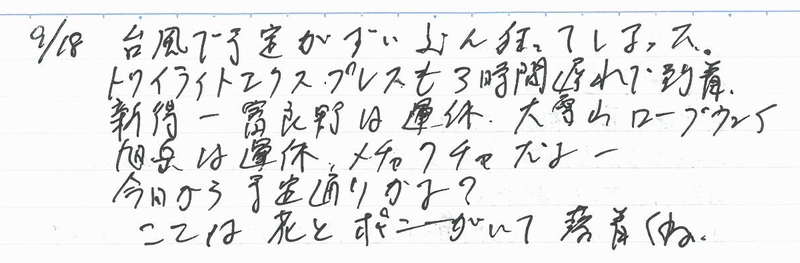 9/18 台風で予定がずいぶん狂ってしまった。
トワイライトエクスプレスも3時間遅れで到着、
新得ー富良野は運休、大雪山ロープウェイ
旭岳は運休、メチャクチャだよー
今日から予定通りかな?
ここは花とポニーがいて落着くね。